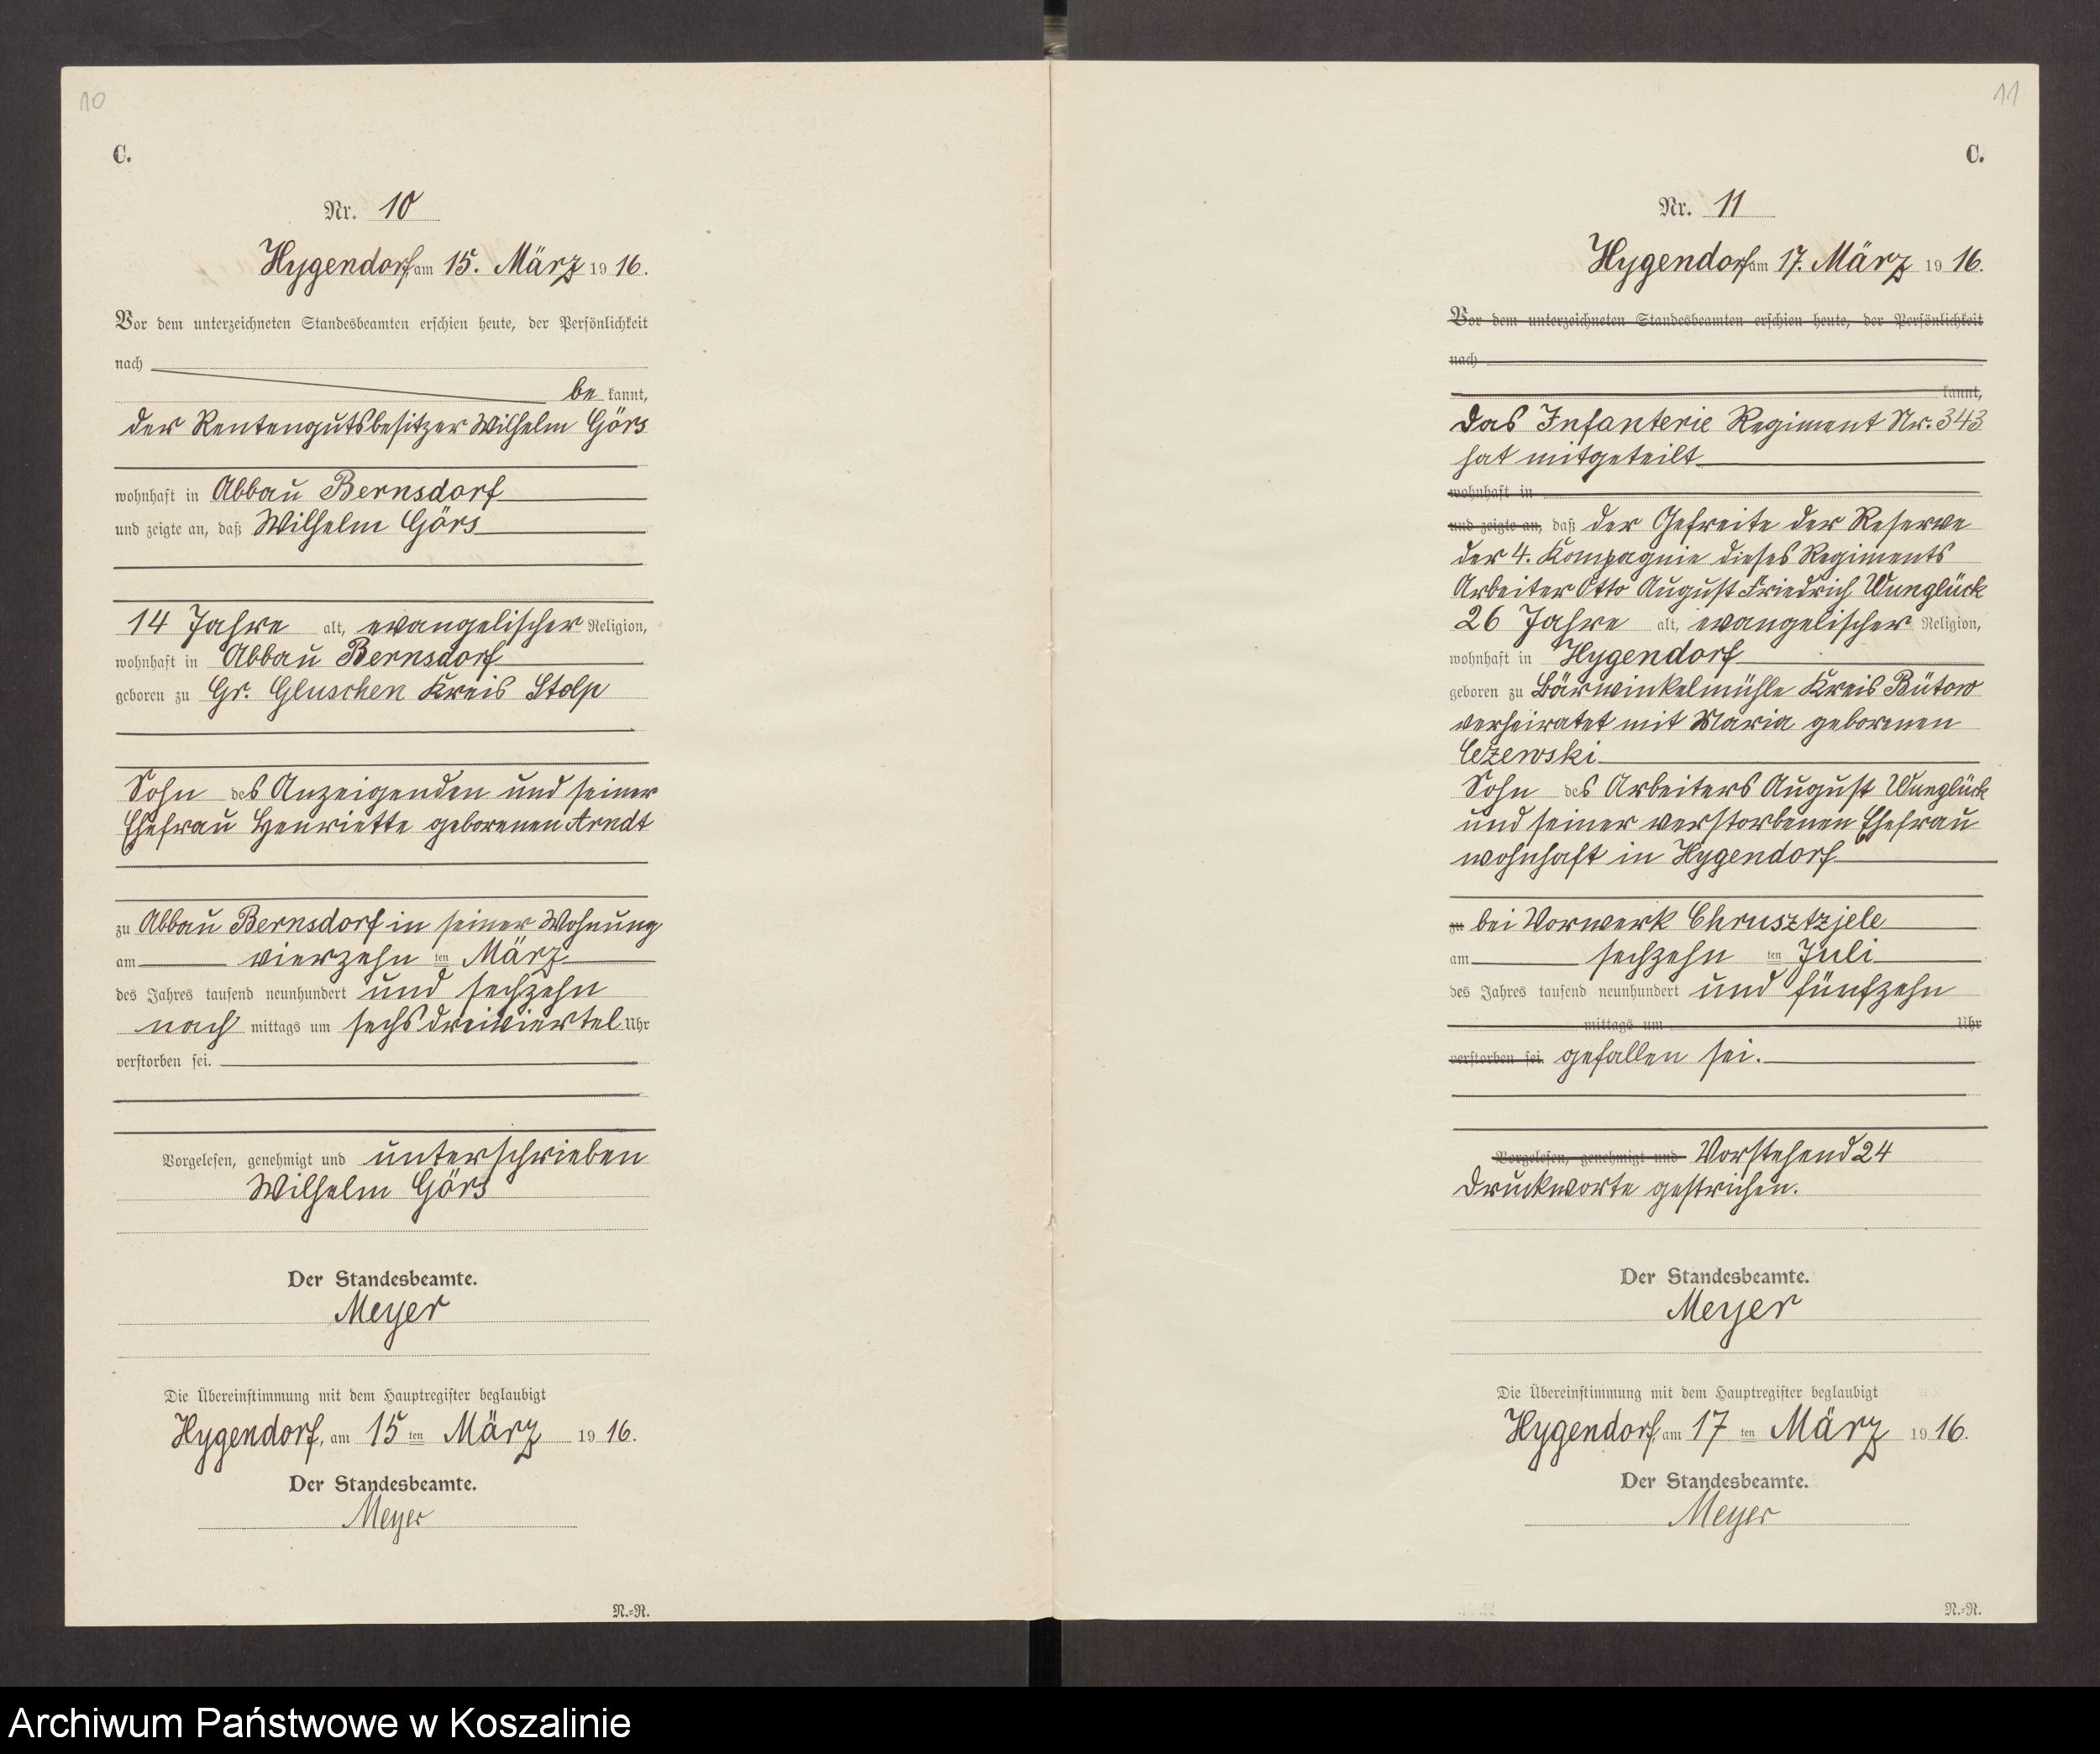 10
C.
Nr. 10
Hygendorf, am 15. März 1916.
Vor dem unterzeichneten Standesbeamten erschien heute, der Persönlichkeit
nach
be kannt,
der Rentengutsbesitzer Wilhelm Görs
wohnhaft in Abbau Bernsdorf
und zeigte an, daß Wilhelm Görs
14 Jahre alt, evangelischer Religion,
wohnhaft in Abbau Bernsdorf
geboren zu Gr. Gluschen Kreis Stolp
Sohn des Anzeigenden und seiner
Ehefrau Henriette geborenen Arndt
zu Abbau Bernsdorf in seiner Wohnung
am vierzehn ten März
des Jahres tausend neunhundert und sechzehn
nach mittags um sechs dreiviertel Uhr
verstorben sei.
Vorgelesen, genehmigt und unterschrieben
Wilhelm Görs
Der Standesbeamte.
Meyer
Die Übereinstimmung mit dem Hauptregister beglaubigt
Hygendorf, am 15 ten März 1916.
Der Standesbeamte.
Meyer
N.-R.
11
C.
Nr. 11
Hygendorf am 17. März 1916.
Vor dem unterzeichneten Standesbeamten erschien heute, der Persönlichkeit
nach
kannt,
Das Infanterie Regiment Nr. 343
hat mitgeteilt
wohnhaft in
und zeigte an, daß der Gefreite der Reserve
der 4. Kompagnie dieses Regiments
Arbeiter Otto August Friedrich Wunglück
26 Jahre alt, evangelischer Religion,
wohnhaft in Hygendorf
geboren zu Bärwinkelmühle Kreis Bütow
verheiratet mit Maria geborenen
Czezewski
Sohn des Arbeiters August Wunglück
und seiner verstorbenen Ehefrau
wohnhaft in Hygendorf
zu bei Vorwerk Chrusztzjele
am sechzehn ten Juli
des Jahres tausend neunhundert und fünfzehn
mittags um Uhr
verstorben sei. gefallen sei.
Vorgelesen, genehmigt und Vorstehend 24
Druckworte gestrichen.
Der Standesbeamte.
Meyer
Die Übereinstimmung mit dem Hauptregister beglaubigt
Hygendorf, am 17 ten März 1916.
Der Standesbeamte.
Meyer
N.-R.
Archiwum Państwowe w Koszalinie